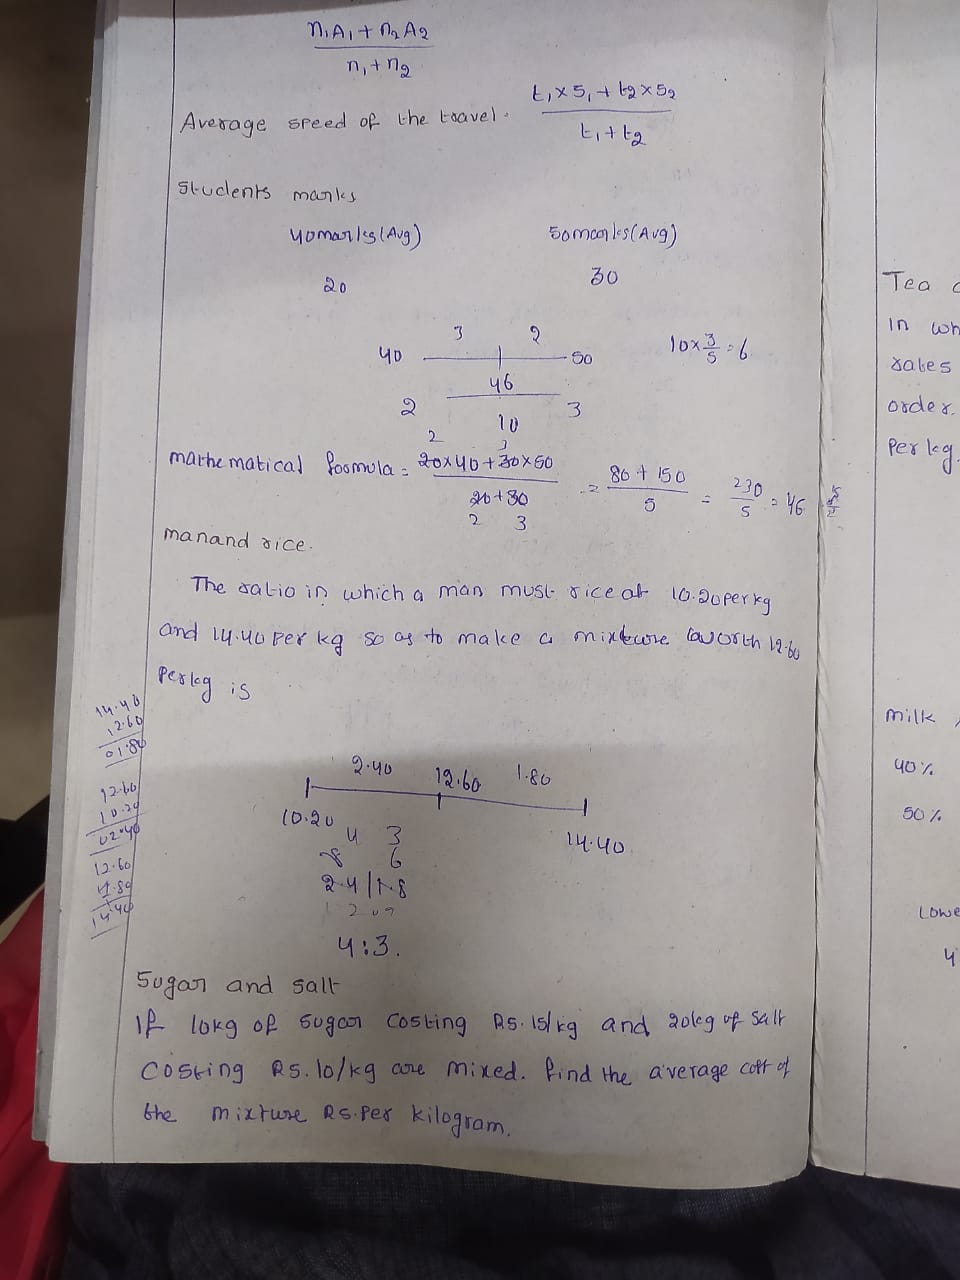 n₁A₁ + n₂A₂
n₁ + n₂
Average speed of the travel. t₁×S₁ + t₂×S₂
t₁ + t₂
Students marks
40marks(Avg) 50marks(Avg)
20 30
3 2
40 50 10×3/5 = 6
46
2 10 3
2 3
mathematical formula = 20×40+30×50 = 80 + 150 = 230 = 46
20+30 5 5
2 3
manand rice.
The ratio in which a man must rice at 10.20perkg
and 14.40 per kg so as to make a mixture worth 12.60
perkg is
14.40
12.60
01.80
12.60
10.20
02.40
12.60
1.80
14.40
2.40 12.60 1.80
10.20 14.40
4 3
8 6
2.4/1.8
4:3.
Sugar and salt
If 10kg of sugar costing Rs.15/kg and 20kg of salt
costing Rs.10/kg are mixed. find the average cost of
the mixture Rs.per kilogram.
Tea
in wh
rates
order.
Per kg.
milk
40%
50%
Lowe
4